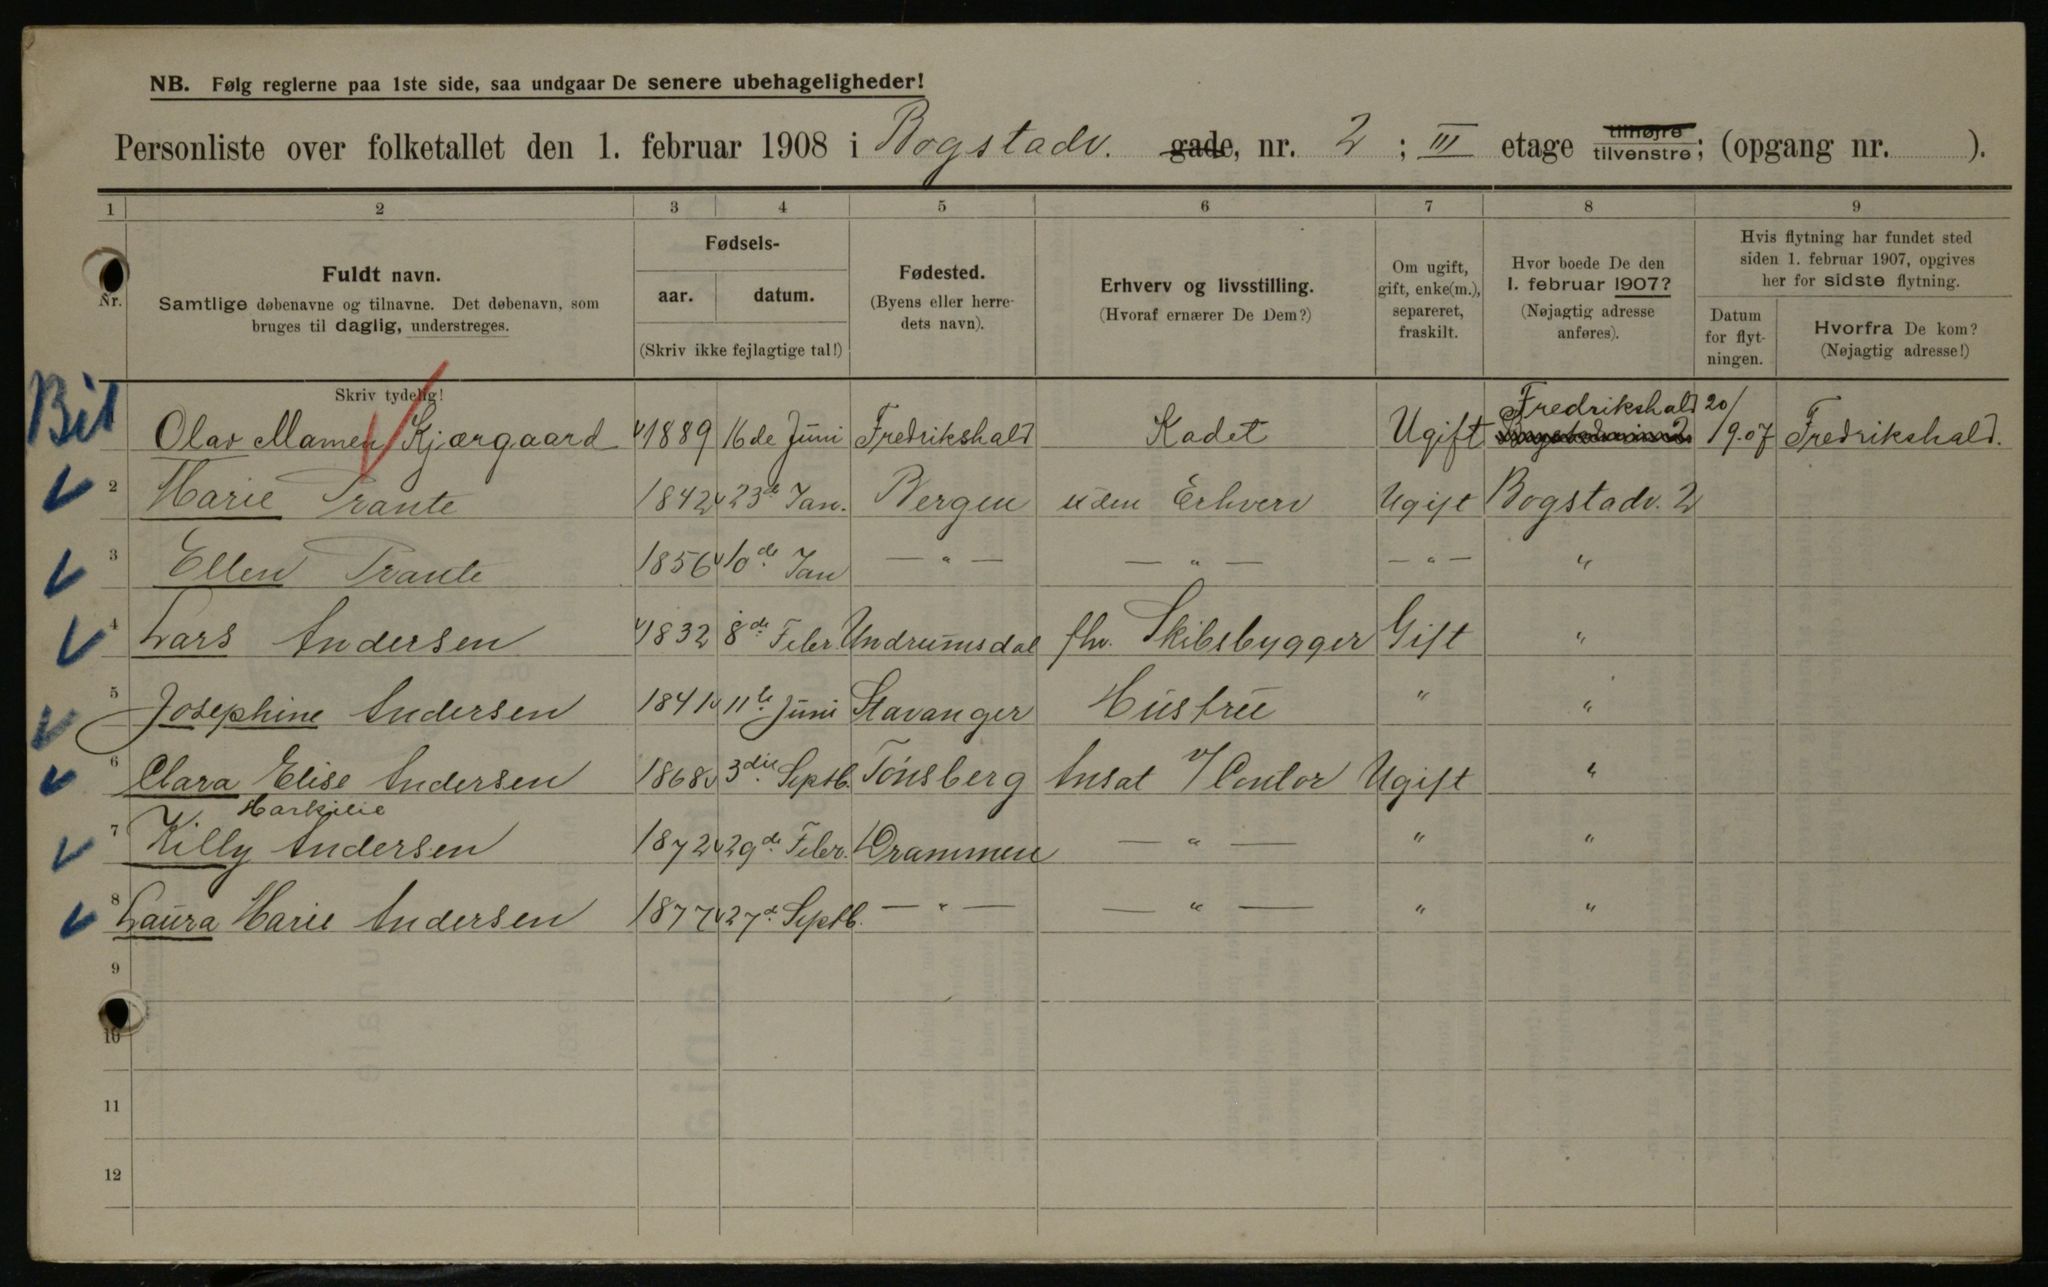 NB. Følg reglerne paa 1ste side, saa undgaar De senere ubehageligheder!
Personliste over folketallet den 1. februar 1908 i Bogstadv. gade, nr. 2 ; III etage tilhøjre tilvenstre; (opgang nr. ).
1 2 3 4 5 6 7 8 9
Nr.
Fuldt navn.
Samtlige døbenavne og tilnavne. Det døbenavn, som
bruges til daglig, understreges.
Skriv tydelig!
Fødsels-
aar. datum.
(Skriv ikke fejlagtige tal!)
Fødested.
(Byens eller herre-
dets navn).
Erhverv og livsstilling.
(Hvoraf ernærer De Dem?)
Om ugift,
gift, enke(m.),
separeret,
fraskilt.
Hvor boede De den
1. februar 1907?
(Nøjagtig adresse
anføres).
Hvis flytning har fundet sted
siden 1. februar 1907, opgives
her for sidste flytning.
Datum
for flyt-
ningen.
Hvorfra De kom?
(Nøjagtig adresse!)
Bil Olav Mamen Kjærgaard 1889 16de Juni Fredrikshald Kadet Ugift Fredrikshald 20/9.07 Fredrikshald.
2 Marie Trante 1842 23de Jan. Bergen uden Erhverv Ugift Bogstadv. 2
3 Ellen Trante 1856 10de Jan — " — — " — — " — "
4 Lars Andersen 1832 8de Febr. Undrumsdal fhv. Skibsbygger Gift "
5 Josephine Andersen 1841 11te Juni Stavanger Hustru " "
6 Clara Elise Andersen 1868 3die Septb. Tønsberg Ansat v/ Contor Ugift "
7 Killy Andersen 1872 29de Febr. Drammen — " — " "
8 Laura Marie Andersen 1877 27de Septb. — " — — " — " "
9
10
11
12